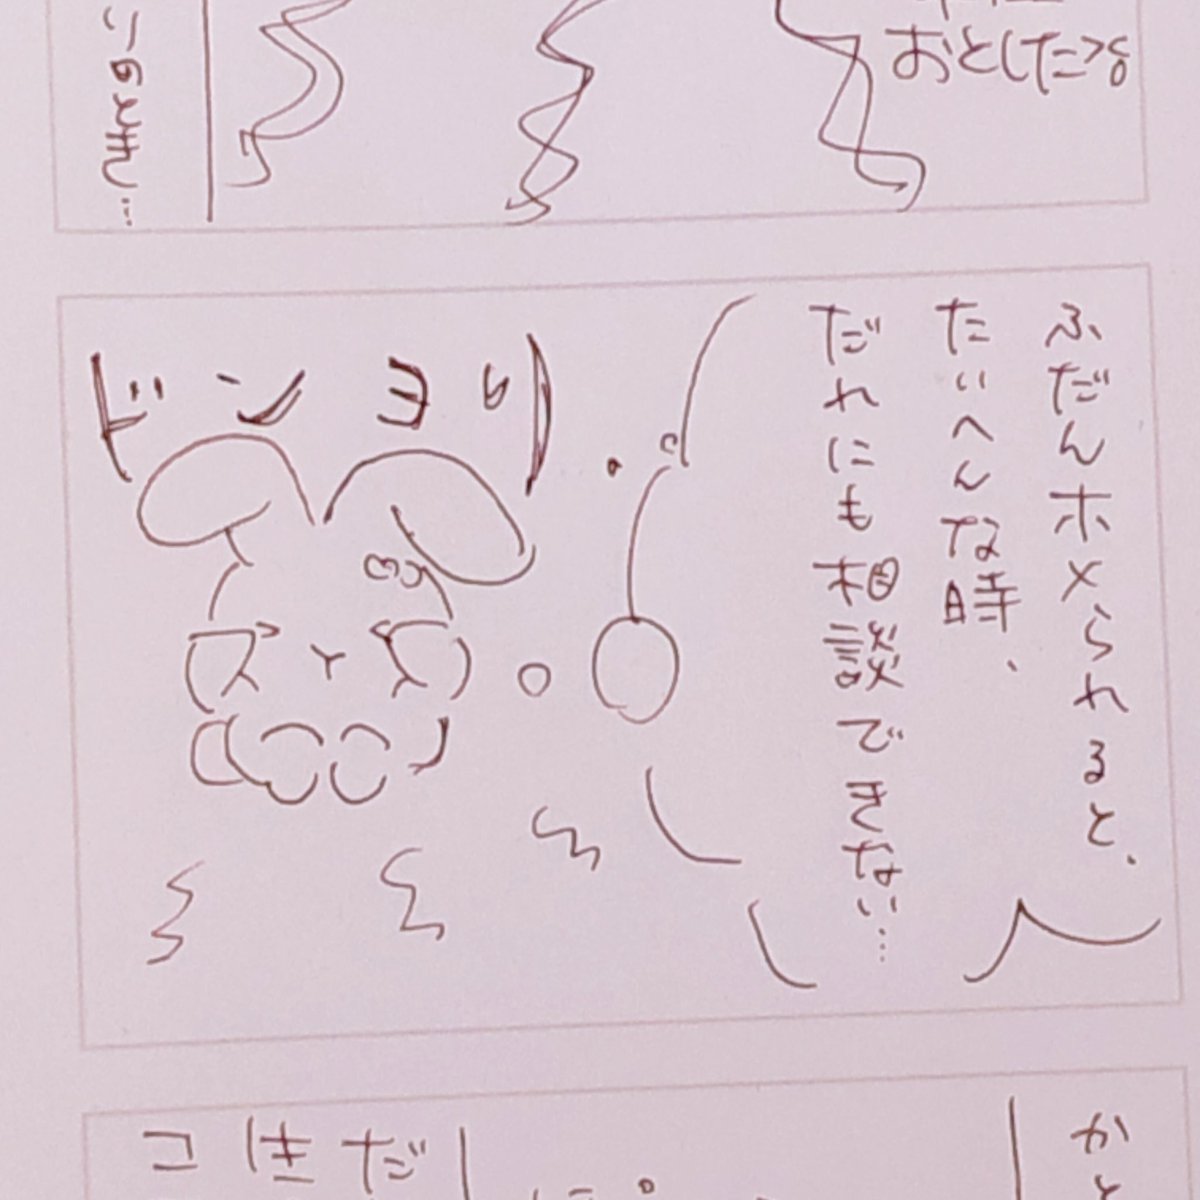 おとした
りのとき…
ふだんホメられると、
たいへんな時、
だれにも相談できない…
ドンヨリ
かと
はきだ
コ